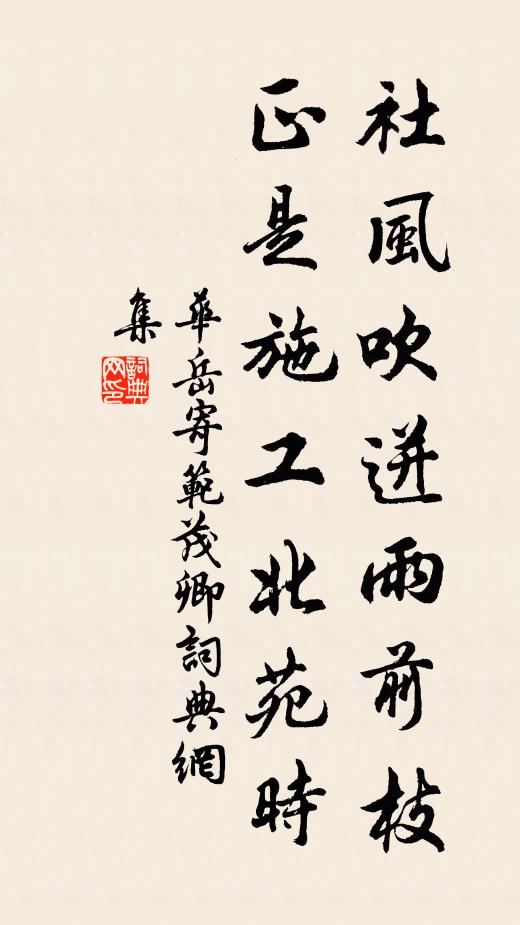 社風吹迸雨前枝
正是施工北苑時
華岳寄範茂卿詞典網
集
詞典网印